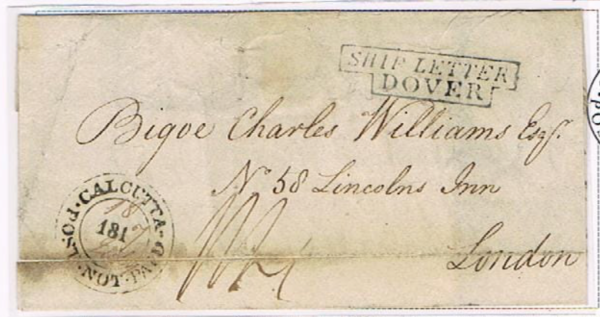 SHIP LETTER
DOVER
Bigoe Charles Williams Esqr.
No 58 Lincolns Inn
London
CALCUTTA · POST · NOT · PAID
181
PO